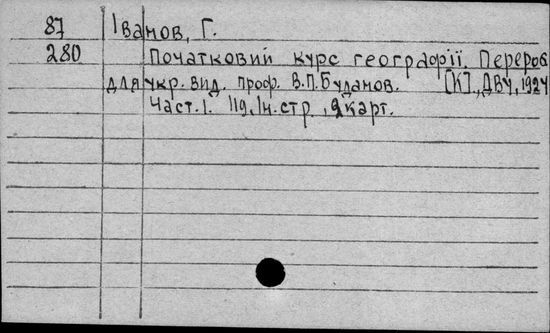 87 Іванов, Г.
280 Початковий курс географії. Перероб
для укр. вид. проф. В.П.Буданов. [К]., ДВУ, 1924
Част. І. 119, Ін. стр., 2 карт.